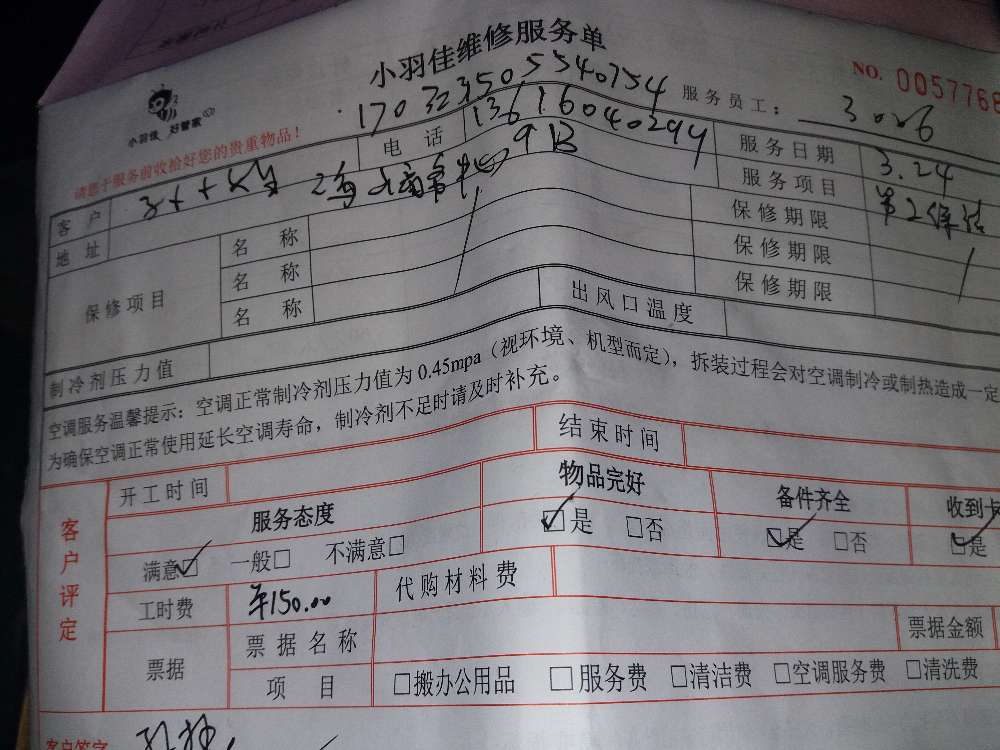 小羽佳维修服务单
小羽佳 好管家
NO. 0057766
17032350 5540754
服务员工： 3006
请您于服务前收拾好您的贵重物品！
客户 电话 13616040294 服务日期 3.24
地址 9B 服务项目
保修项目 名称 保修期限
名称 保修期限
名称 保修期限
制冷剂压力值 出风口温度
空调服务温馨提示：空调正常制冷剂压力值为0.45mpa（视环境、机型而定），拆装过程会对空调制冷或制热造成一定
为确保空调正常使用延长空调寿命，制冷剂不足时请及时补充。
客户评定 开工时间 结束时间
服务态度 物品完好 备件齐全 收到卡
满意☑ 一般□ 不满意□ ☑是 □否 ☑是 □否 ☑是
工时费 ¥150.00 代购材料费
票据 票据名称 票据金额
项目 □搬办公用品 □服务费 □清洁费 □空调服务费 □清洗费
客户签字